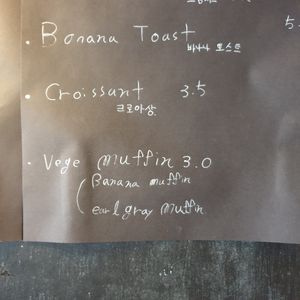 • Banana Toast 5.
바나나 토스트
• Croissant 3.5
크로아상
• Vege muffin 3.0
(Banana muffin
earl gray muffin